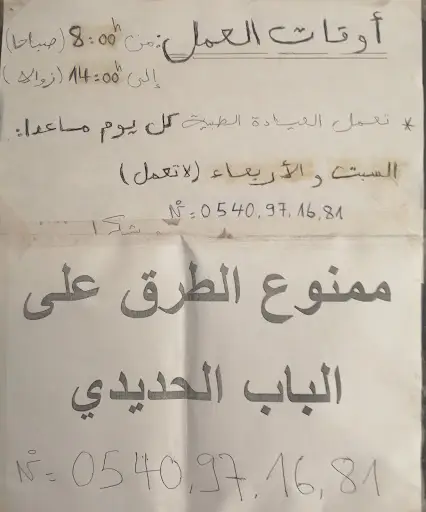 أوقات العمل: من 8:00h (صباحا)
إلى 14:00h (زوالا)
* تعمل العيادة الطبية كل يوم ماعدا:
السبت والأربعاء (لا تعمل)
N°: 0540.97.16.81
شكرا
ممنوع الطرق على
الباب الحديدي
N° = 0540.97.16.81